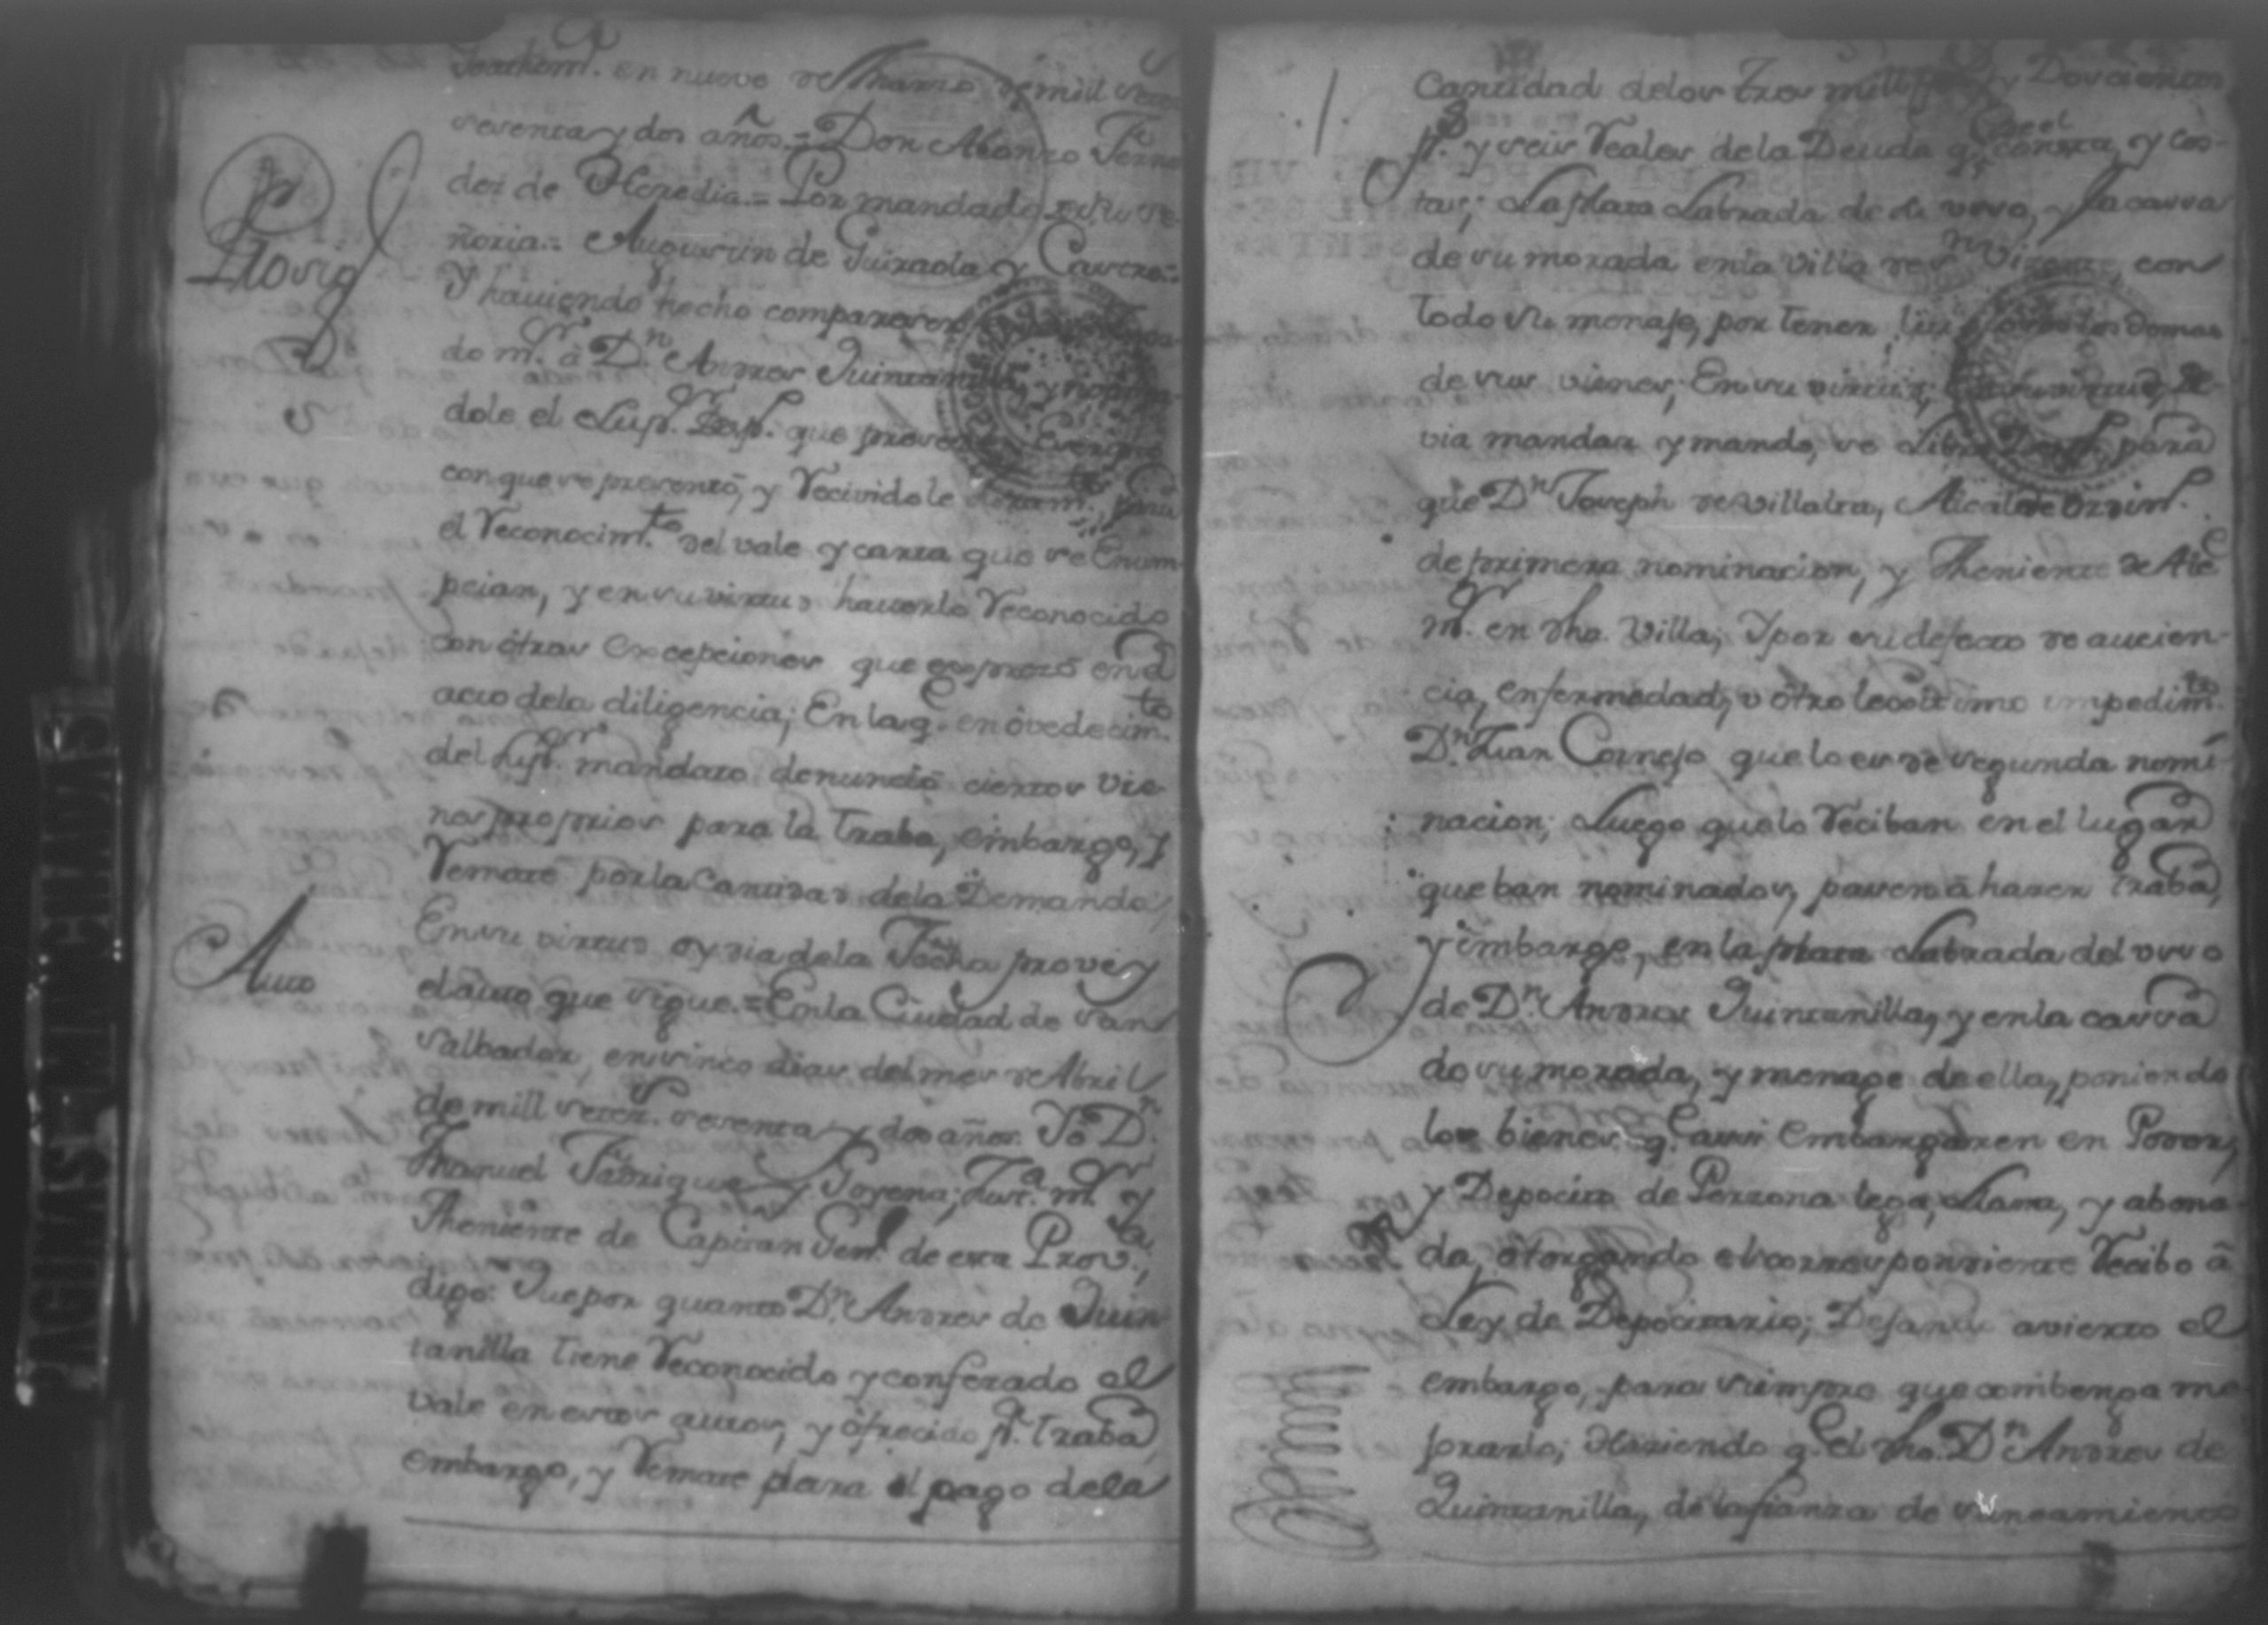 en nueve de Marzo de mill setez.s
sesenta y dos años = Don Alonzo Fern
dez de Heredia = Por mandado de Su Se-
ñoria = Augustin de Guiraola y Castro =
Prosig
Y haviendo hecho comparezer
do m.r à D.n Andres Quintanilla, y
dole el Sup.r Desp. que
con que se presentò, y recividole para
el reconocim.to del vale y carta que se Enum
peian, y en su virtud haverlo reconocido
con òtras excepciones que expresò en el
acto dela diligencia; En la q.e en òvedecim.to
del Sup.r mandato denunciò ciertos vie
nes proprios para la traba, embargo, y
remate por la Cantidad dela Demanda,
Auto
En su virtud oy dia dela Fecha provèy
el auto que sigue = En la Ciudad de San
Salbador, en sinco dias del mes de Abril
de mill setez.s sesenta y dos años. Yo D.n
Manuel Fadrique y Goyena; Just.a m.r y
Theniente de Capitan Gen.l de esta Prov.a,
digo: Que por quanto D.n Andres de Quin
tanilla tiene reconocido y confezado el
vale en estos autos, y òfrecido p.a traba
embargo, y remate para el pago dela
Cantidad delos tres mill y Doscientos
p.s y seis reales dela Deuda q.e consta, y cos-
tas; La plata Labrada de su uso, y la cassa
de su morada en la Villa de S.n Vizente, con
todo su menaje, por tener los demas
de sus vienes; En su virtud, de-
via mandar y mando, se Libre Desp. para
que D.n Joseph de Villalta, Alcalde Ordin.o
de primera nominacion, y Theniente de Alc.e
m.r en dha. Villa; Y por su defecto de aucien-
cia, enfermedad, u òtro lecoitimo impedim.to
D.n Juan Cornejo que lo es de segunda nomi-
nacion; Luego que lo reciban en el lugar
que ban nominados, pasen à hazer traba,
y embargo, en la plata Labrada del uso
de D.n Andres Quintanilla, y en la cassa
de su morada, y menage de ella, poniendo
los bienes q.e assi embargaren en Poder,
y Depocito de Perzona lega, Llana, y abona
da, òtorgando el correspondiente recibo à
Ley de Depocitario; Dejando avierto el
embargo, para siempre que combenga me
jorarlo; Haziendo q.e el dho. D.n Andres de
Quintanilla, de la fianza de saneamiento